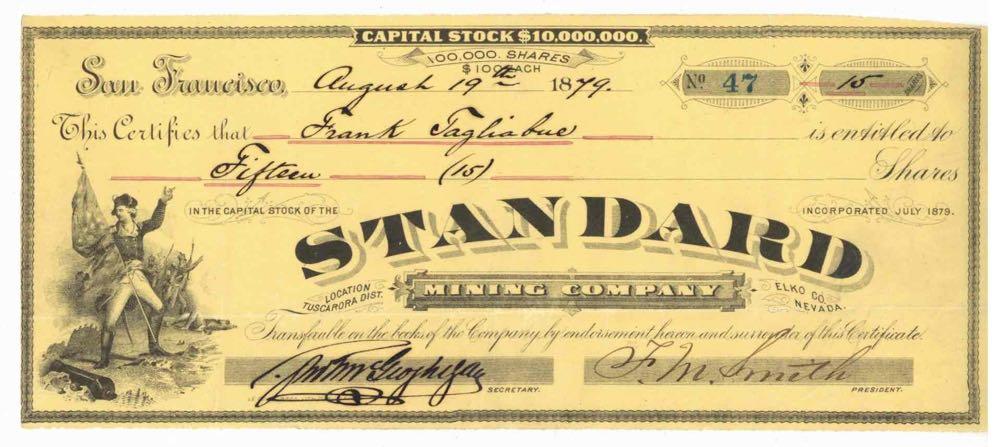 CAPITAL STOCK $10,000,000.
100,000. SHARES
$100 EACH
San Francisco, August 19th 1879.
No 47
15 SHARES
This Certifies that Frank Tagliabue is entitled to
Fifteen (15) Shares
IN THE CAPITAL STOCK OF THE
STANDARD
INCORPORATED JULY 1879.
LOCATION
TUSCARORA DIST.
MINING COMPANY
ELKO CO.
NEVADA.
Transferable on the books of the Company by endorsement hereon and surrender of this Certificate.
SECRETARY.
F. M. Smith
PRESIDENT.